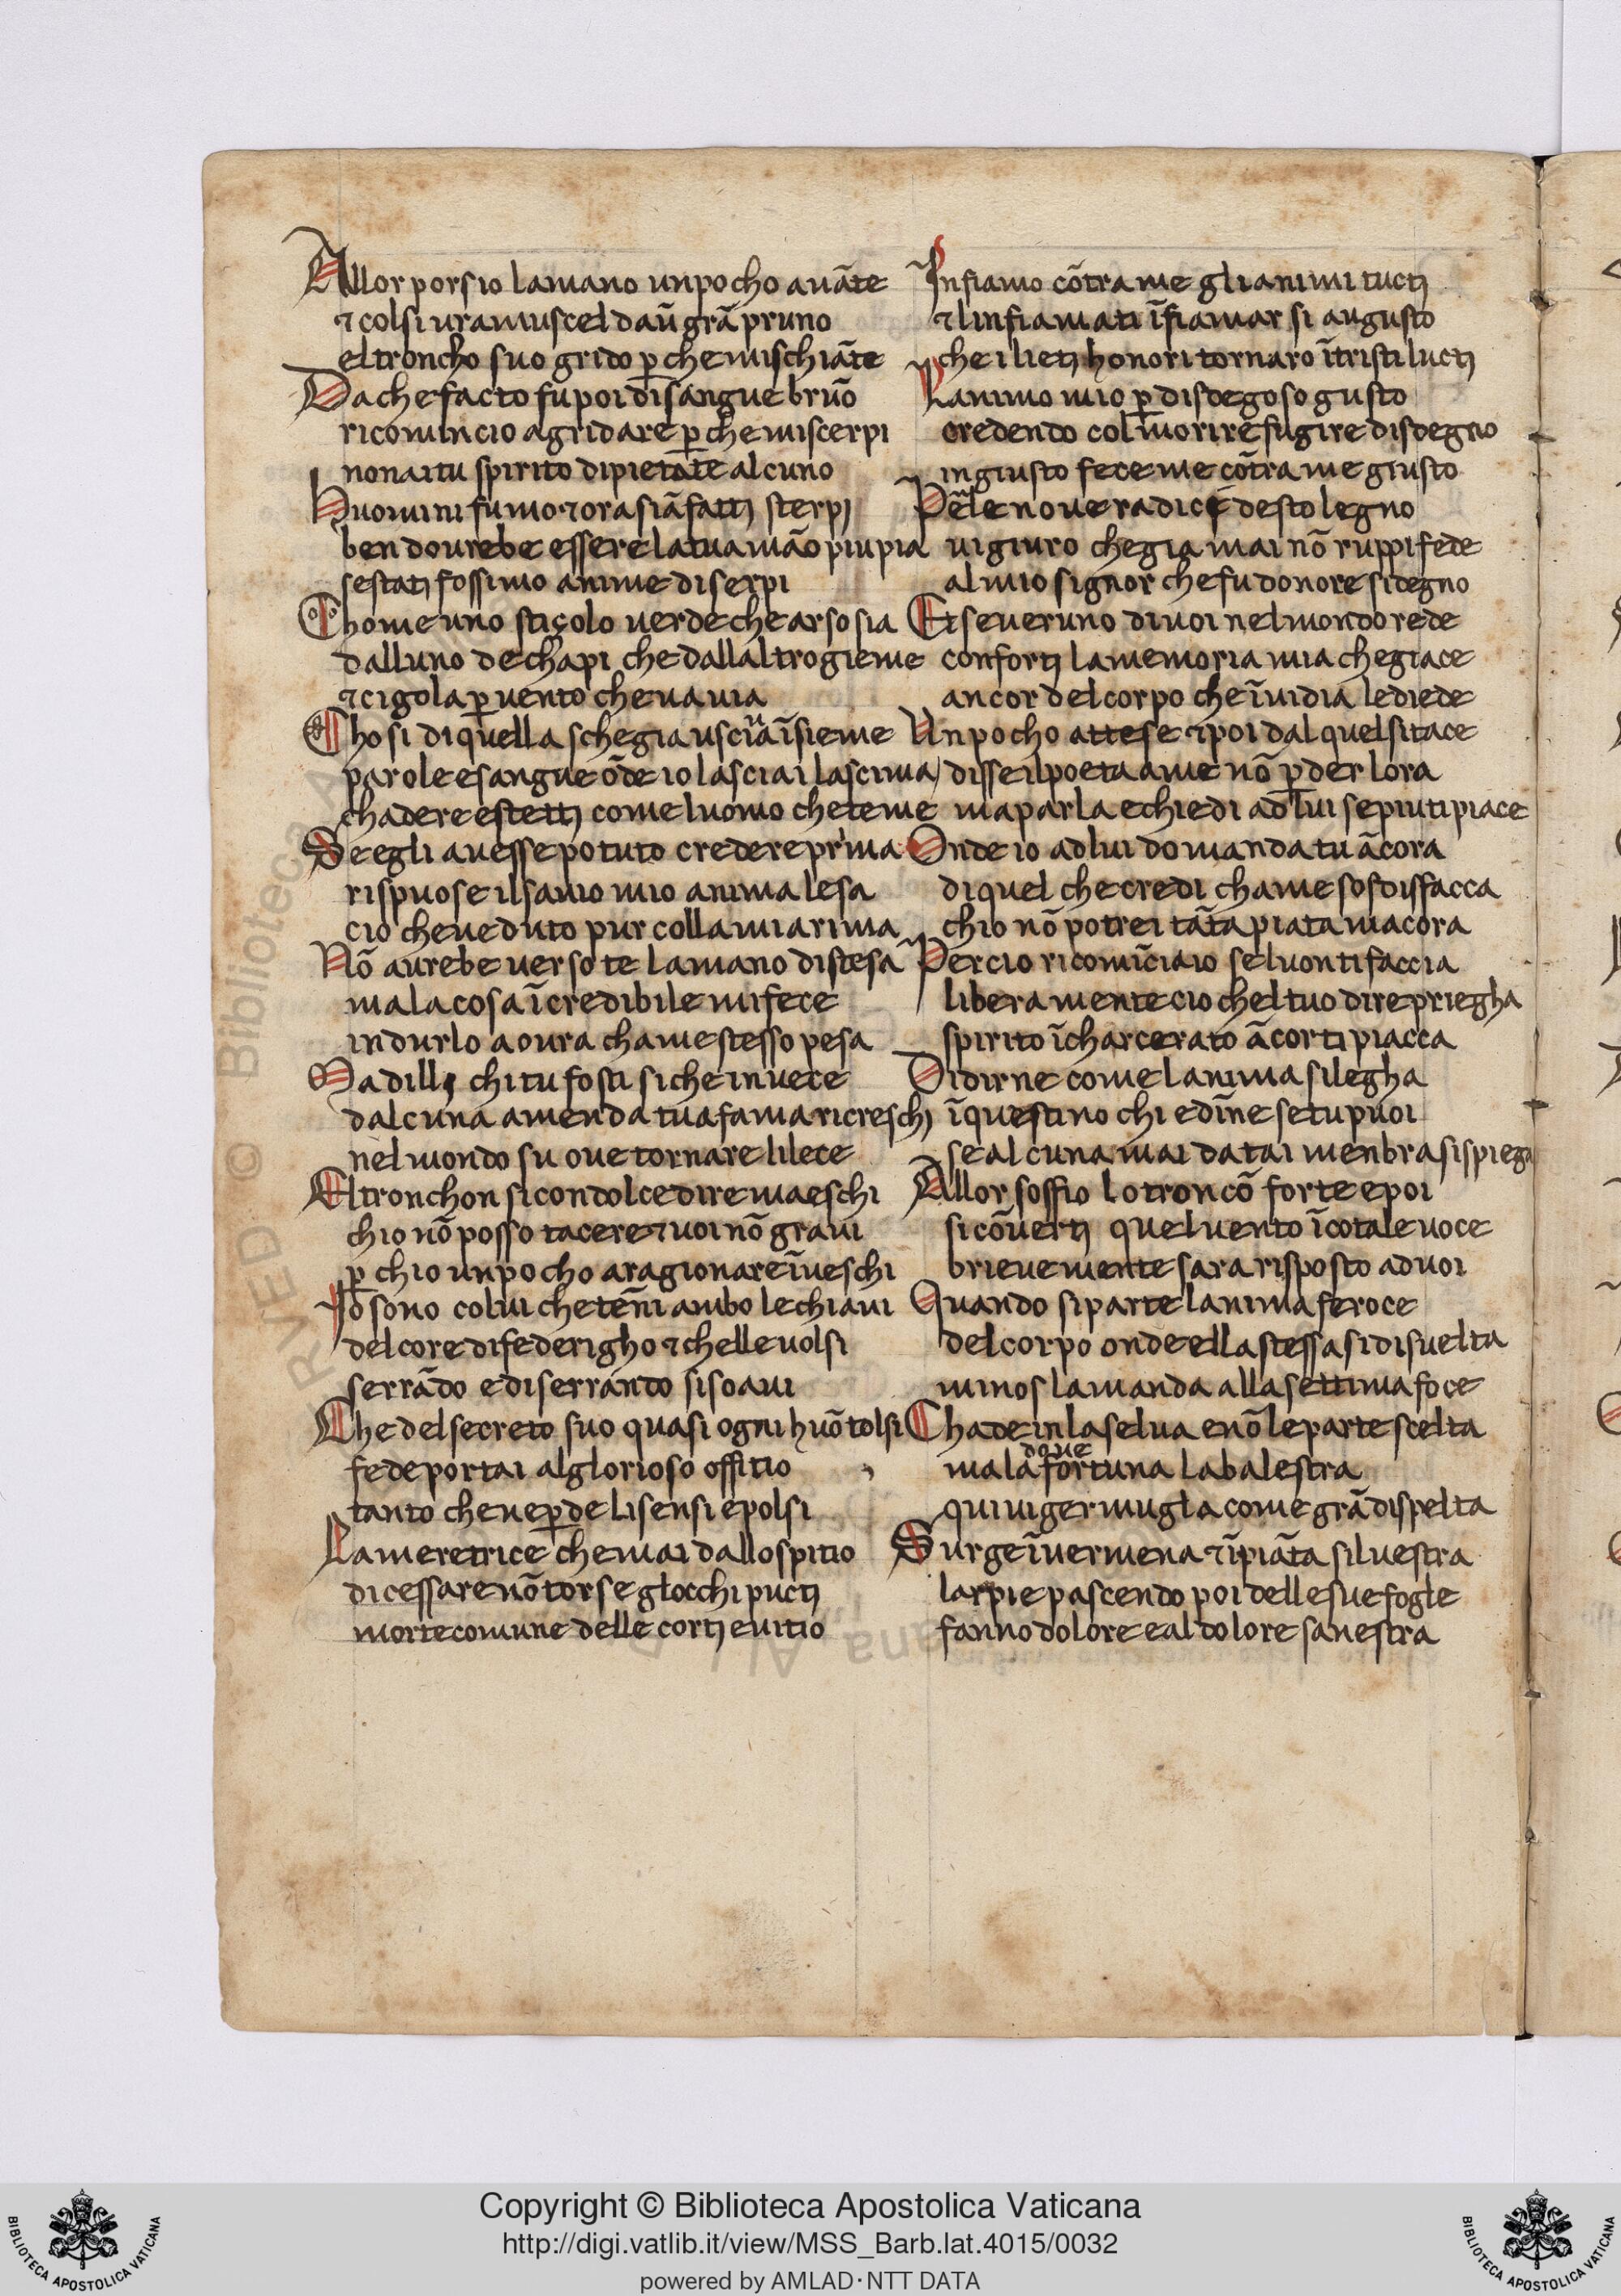 Allor porsio la mano un pocho auāte
⁊ colsi un ramuscel daū grā pruno
el troncho suo grido ꝑche mi schiāte
Da che facto fu poi di sangue brūo
ricomincio a gridare ꝑche mi scerpi
non ai tu spirito di pietate alcuno
Huomini fumo ⁊ ora siā fatti sterpi
ben dourebe essere la tua māo piu pia
se stati fossimo anime di serpi
Chome uno stiçolo uerde che arso sia
dalluno de chapi che dallaltro gieme
⁊ cigola ꝑ uento che ua uia
Chosi di quella schegia usciua īsieme
parole e sangue ōde io lasciai la scima
chadere e stetti come luomo che teme
Se egli auesse potuto credere prima
rispuose il sauio mio anima lesa
cio che ueduto pur colla mia rima
Nō aurebe uerso te la mano distesa
ma la cosa īcredibile mi fece
indurlo a oura cha me stesso pesa
Ma dilli chi tu fosti siche in uece
dalcuna amenda tua fama ricreschi
nel mondo su oue tornare li lece
El tronchon si con dolce dire maeschi
chio nō posso tacere ⁊ uoi nō graui
ꝑ chio un pocho a ragionare īueschi
Io sono colui che tēni ambo le chiaui
del core di federigho ⁊ chelle uolsi
serrādo e diserrando si soaui
Che del secreto suo quasi ogni huō tolsi
fede portai al glorioso offitio
tanto che ne ꝑde li sensi e polsi
La meretrice che mai dallospitio
di cessare nō torse glocchi pucti
morte comune delle corti e uitio
Infiamo cōtra me gli animi tucti
⁊ linfiamati īfiamar si augusto
che i lieti honori tornaro ī tristi lucti
Lanimo mio ꝑ disdegoso gusto
credendo col morire fugire disdegno
ingiusto fece me cōtra me giusto
Per le noue radice desto legno
ui giuro che gia mai nō ruppi fede
al mio signor che fu donore si degno
Et se ueruno di uoi nel mondo rede
conforti la memoria mia che giace
ancor del corpo che īuidia le diede
Un pocho attese ⁊ poi dal quel si tace
disse il poeta a me nō ꝑder lora
ma parla e chiedi ad lui se piu ti piace
Onde io ad lui domanda tu ācora
di quel che credi cha me sofdisfacca
chio nō potrei tāta piata macora
Percio ricomīciaio se luon ti faccia
libera mente cio chel tuo dire priegha
spirito īcharcerato ācor ti piacca
Di dirne come lanima si legha
ī questi nochi e dīne se tu puoi
se alcuna mai da tai menbra si spiega
Allor soffio lo troncō forte e poi
si cōuerti quel uento ī cotale uoce
brieue mente sara risposto ad uoi
Quando si parte lanima feroce
del corpo onde ella stessa si disuelta
minos la manda alla settima foce
Chade in la selua e nō le parte scelta
ma la doue fortuna la balestra
quiui germugla come grā di spelta
Surge ī uermena ⁊ ī piāta siluestra
larpie pascendo poi delle sue fogle
fanno dolore e al dolore sanestra
RVED © Biblioteca A
Copyright © Biblioteca Apostolica Vaticana
http://digi.vatlib.it/view/MSS_Barb.lat.4015/0032
powered by AMLAD·NTT DATA
BIBLIOTECA APOSTOLICA VATICANA
BIBLIOTECA APOSTOLICA VATICANA